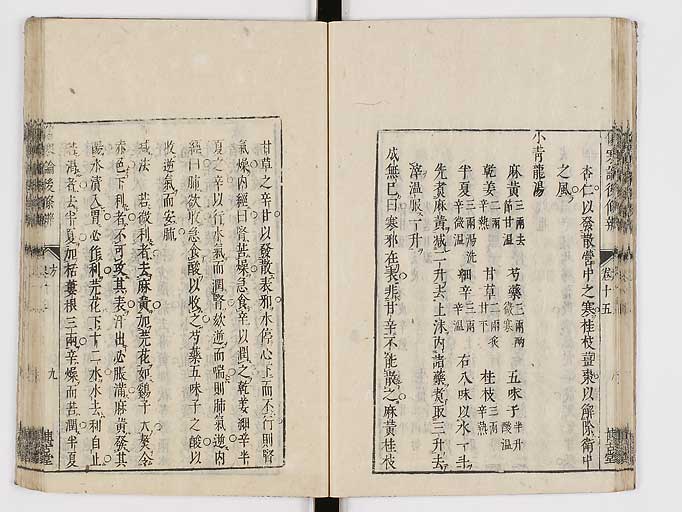 杏仁以發散營中之寒桂枝薑棗以解除衛中
之風
小青龍湯
麻黃三兩去節甘溫 芍藥三兩酸微寒 五味子半升酸溫
乾姜三兩辛熱 甘草三兩炙甘平 桂枝三兩辛熱
半夏三兩湯洗辛微溫 細辛三兩辛溫 右八味以水一斗
先煮麻黃減一升去上沫内諸藥煮取三升去
滓溫服一升
成無已曰寒邪在表非甘辛不能散之麻黃桂枝
甘草之辛甘以發散表邪水停心下而不行則腎
氣燥内經曰腎苦燥急食辛以潤之乾姜細辛半
夏之辛以行水氣而潤腎欬逆而喘則肺氣逆内
經曰肺欲收急食酸以收之芍藥五味子之酸以
收逆氣而安肺
減法 若微利者去麻黃加芫花如鷄子大熬令
赤色下利者不可攻其表汗出必脹滿麻黃發其
陽水漬入胃必作利芫花下十二水水去利自止
若渴者去半夏加栝蔞根三兩辛燥而苦潤半夏
卷十五
九